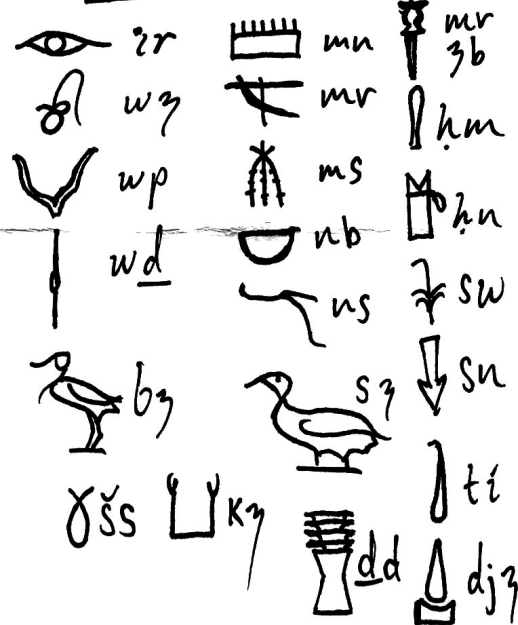 ir
wꜣ
wp
wḏ
bꜣ
šs
kꜣ
mn
mr
ms
nb
ns
sꜣ
ḏd
mr
ꜣb
ḥm
ḥn
sw
sn
tí
djꜣ